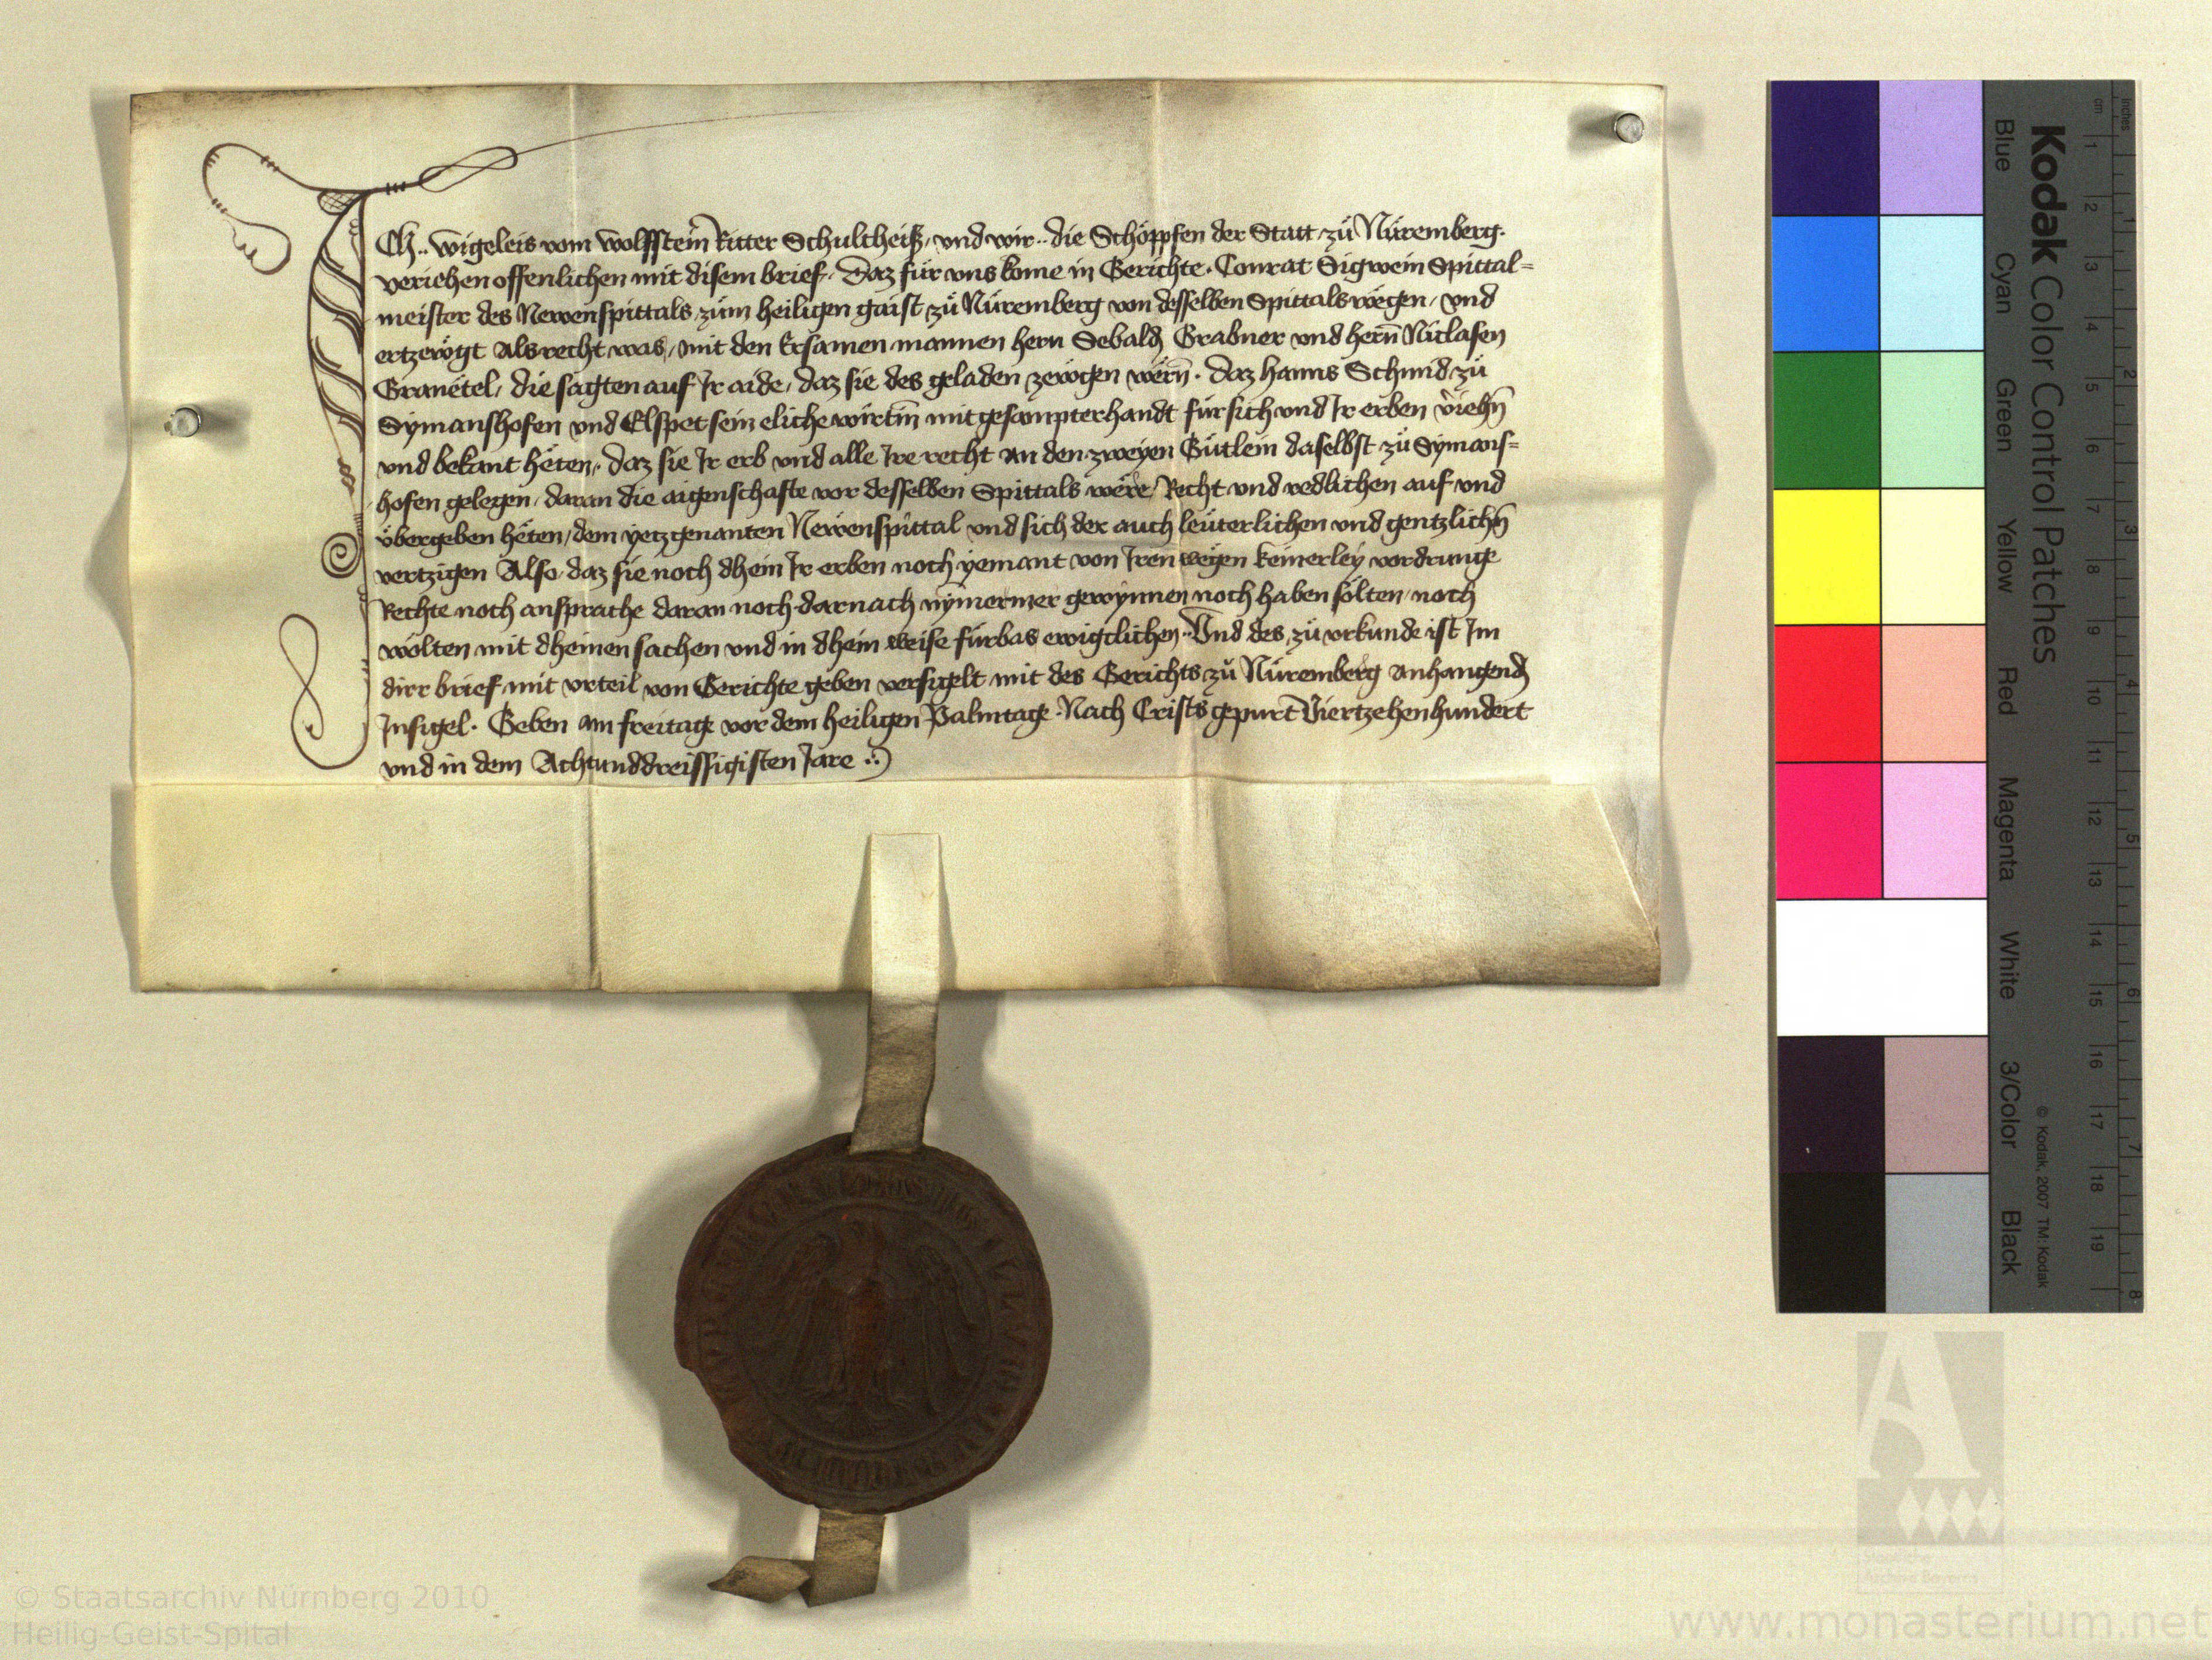 ICh.. wigeleis vom wolffstein Ritter Schultheiß, und wir.. die Schöpfen der Statt zu Nüremberg.
veriehen offenlichen mit disem brief. Daz für uns kome in Gerichte. Conrat Sigwein Spittal=
meister des Newenspittals zum heiligen gaist zu Nüremberg von desselben Spittals wegen, und
ertzewgt als recht was, mit den Ersamen mannen hern Sebald Grabner und hern̄ Niclasen
Granetel, die sagten auf Ir aide, daz sie des geladen zewgen wern̄. Daz hanns Schmid zu
Symanshofen und Elspet sein eliche wirtin mit gesampter handt für sich und Ir erben v̄iehn̄
und bekant heten, daz sie Ir erb und alle Ire recht an den zweyen Gütlein daselbst zu Symans=
hofen gelegen, daran die aigenschafte vor desselben Spittals were, Recht und redlichen auf und
übergeben heten, dem yetzgenanten Newenspittal und sich der auch leuterlichen und gentzlichn̄
vertzigen Also, daz sie noch dhein Ir erben noch yemant von Iren wegen keinerley vordrunge
Rechte noch ansprache daran noch darnach nymermer gewynnen noch haben sölten noch
wölten mit dheinen sachen und in dhein weise fürbas ewigclichen.. Und des zu urkunde ist Im
dirr brief mit urteil von Gerichte geben versigelt mit des Gerichts zu Nüremberg anhangend
Insigel. Geben am freitage vor dem heiligen Palmtage. Nach Crists gepurt Viertzehenhundert
und in dem Achtunddreissigisten Jare
Kodak Color Control Patches
Blue Cyan Green Yellow Red Magenta White 3/Color Black
© Kodak, 2007 TM: Kodak
inches 1 2 3 4 5 6 7 8
cm 1 2 3 4 5 6 7 8 9 10 11 12 13 14 15 16 17 18 19
© Staatsarchiv Nürnberg 2010
Heilig-Geist-Spital
www.monasterium.net